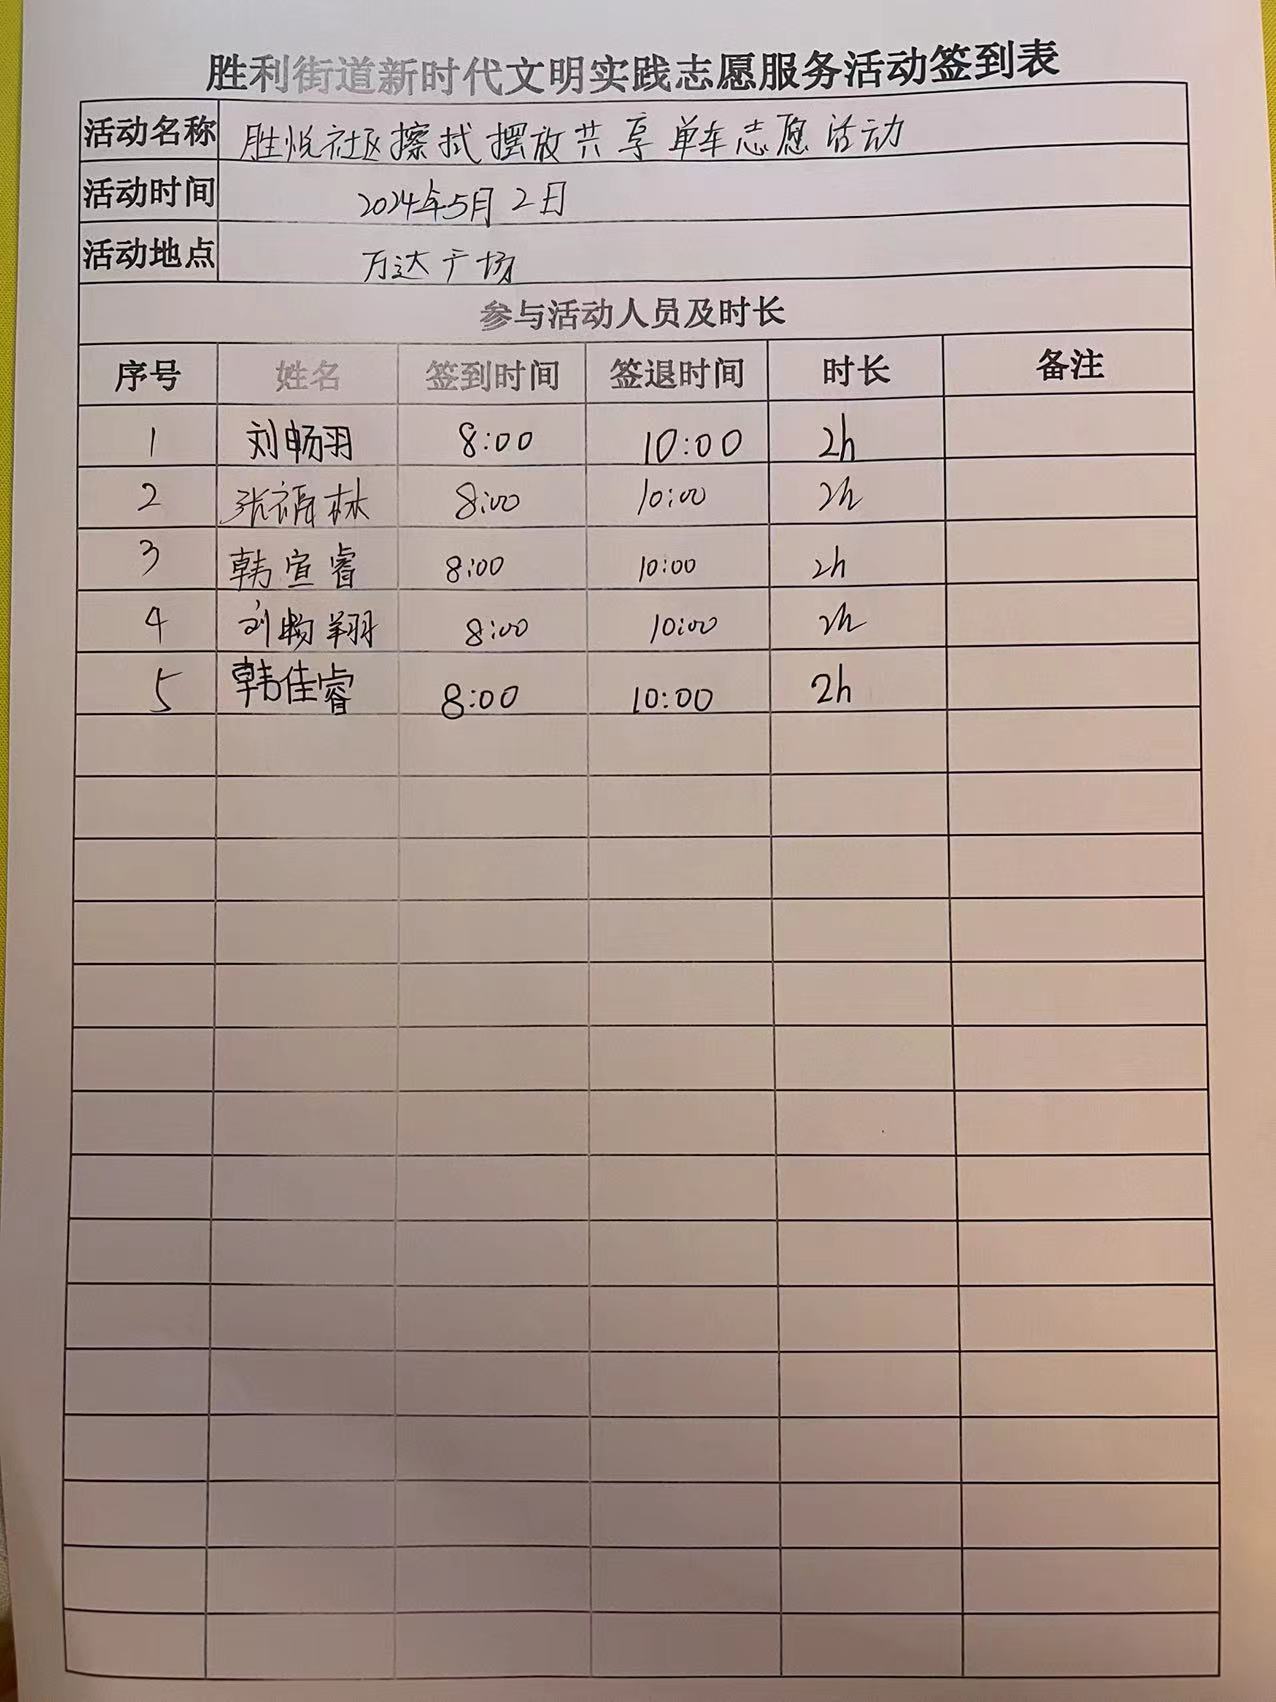 胜利街道新时代文明实践志愿服务活动签到表
活动名称 胜悦社区擦拭摆放共享单车志愿活动
活动时间 2024年5月2日
活动地点 万达广场
参与活动人员及时长
序号 姓名 签到时间 签退时间 时长 备注
1 刘畅羽 8:00 10:00 2h
2 张福林 8:00 10:00 2h
3 韩宣睿 8:00 10:00 2h
4 刘畅翔 8:00 10:00 2h
5 韩佳睿 8:00 10:00 2h